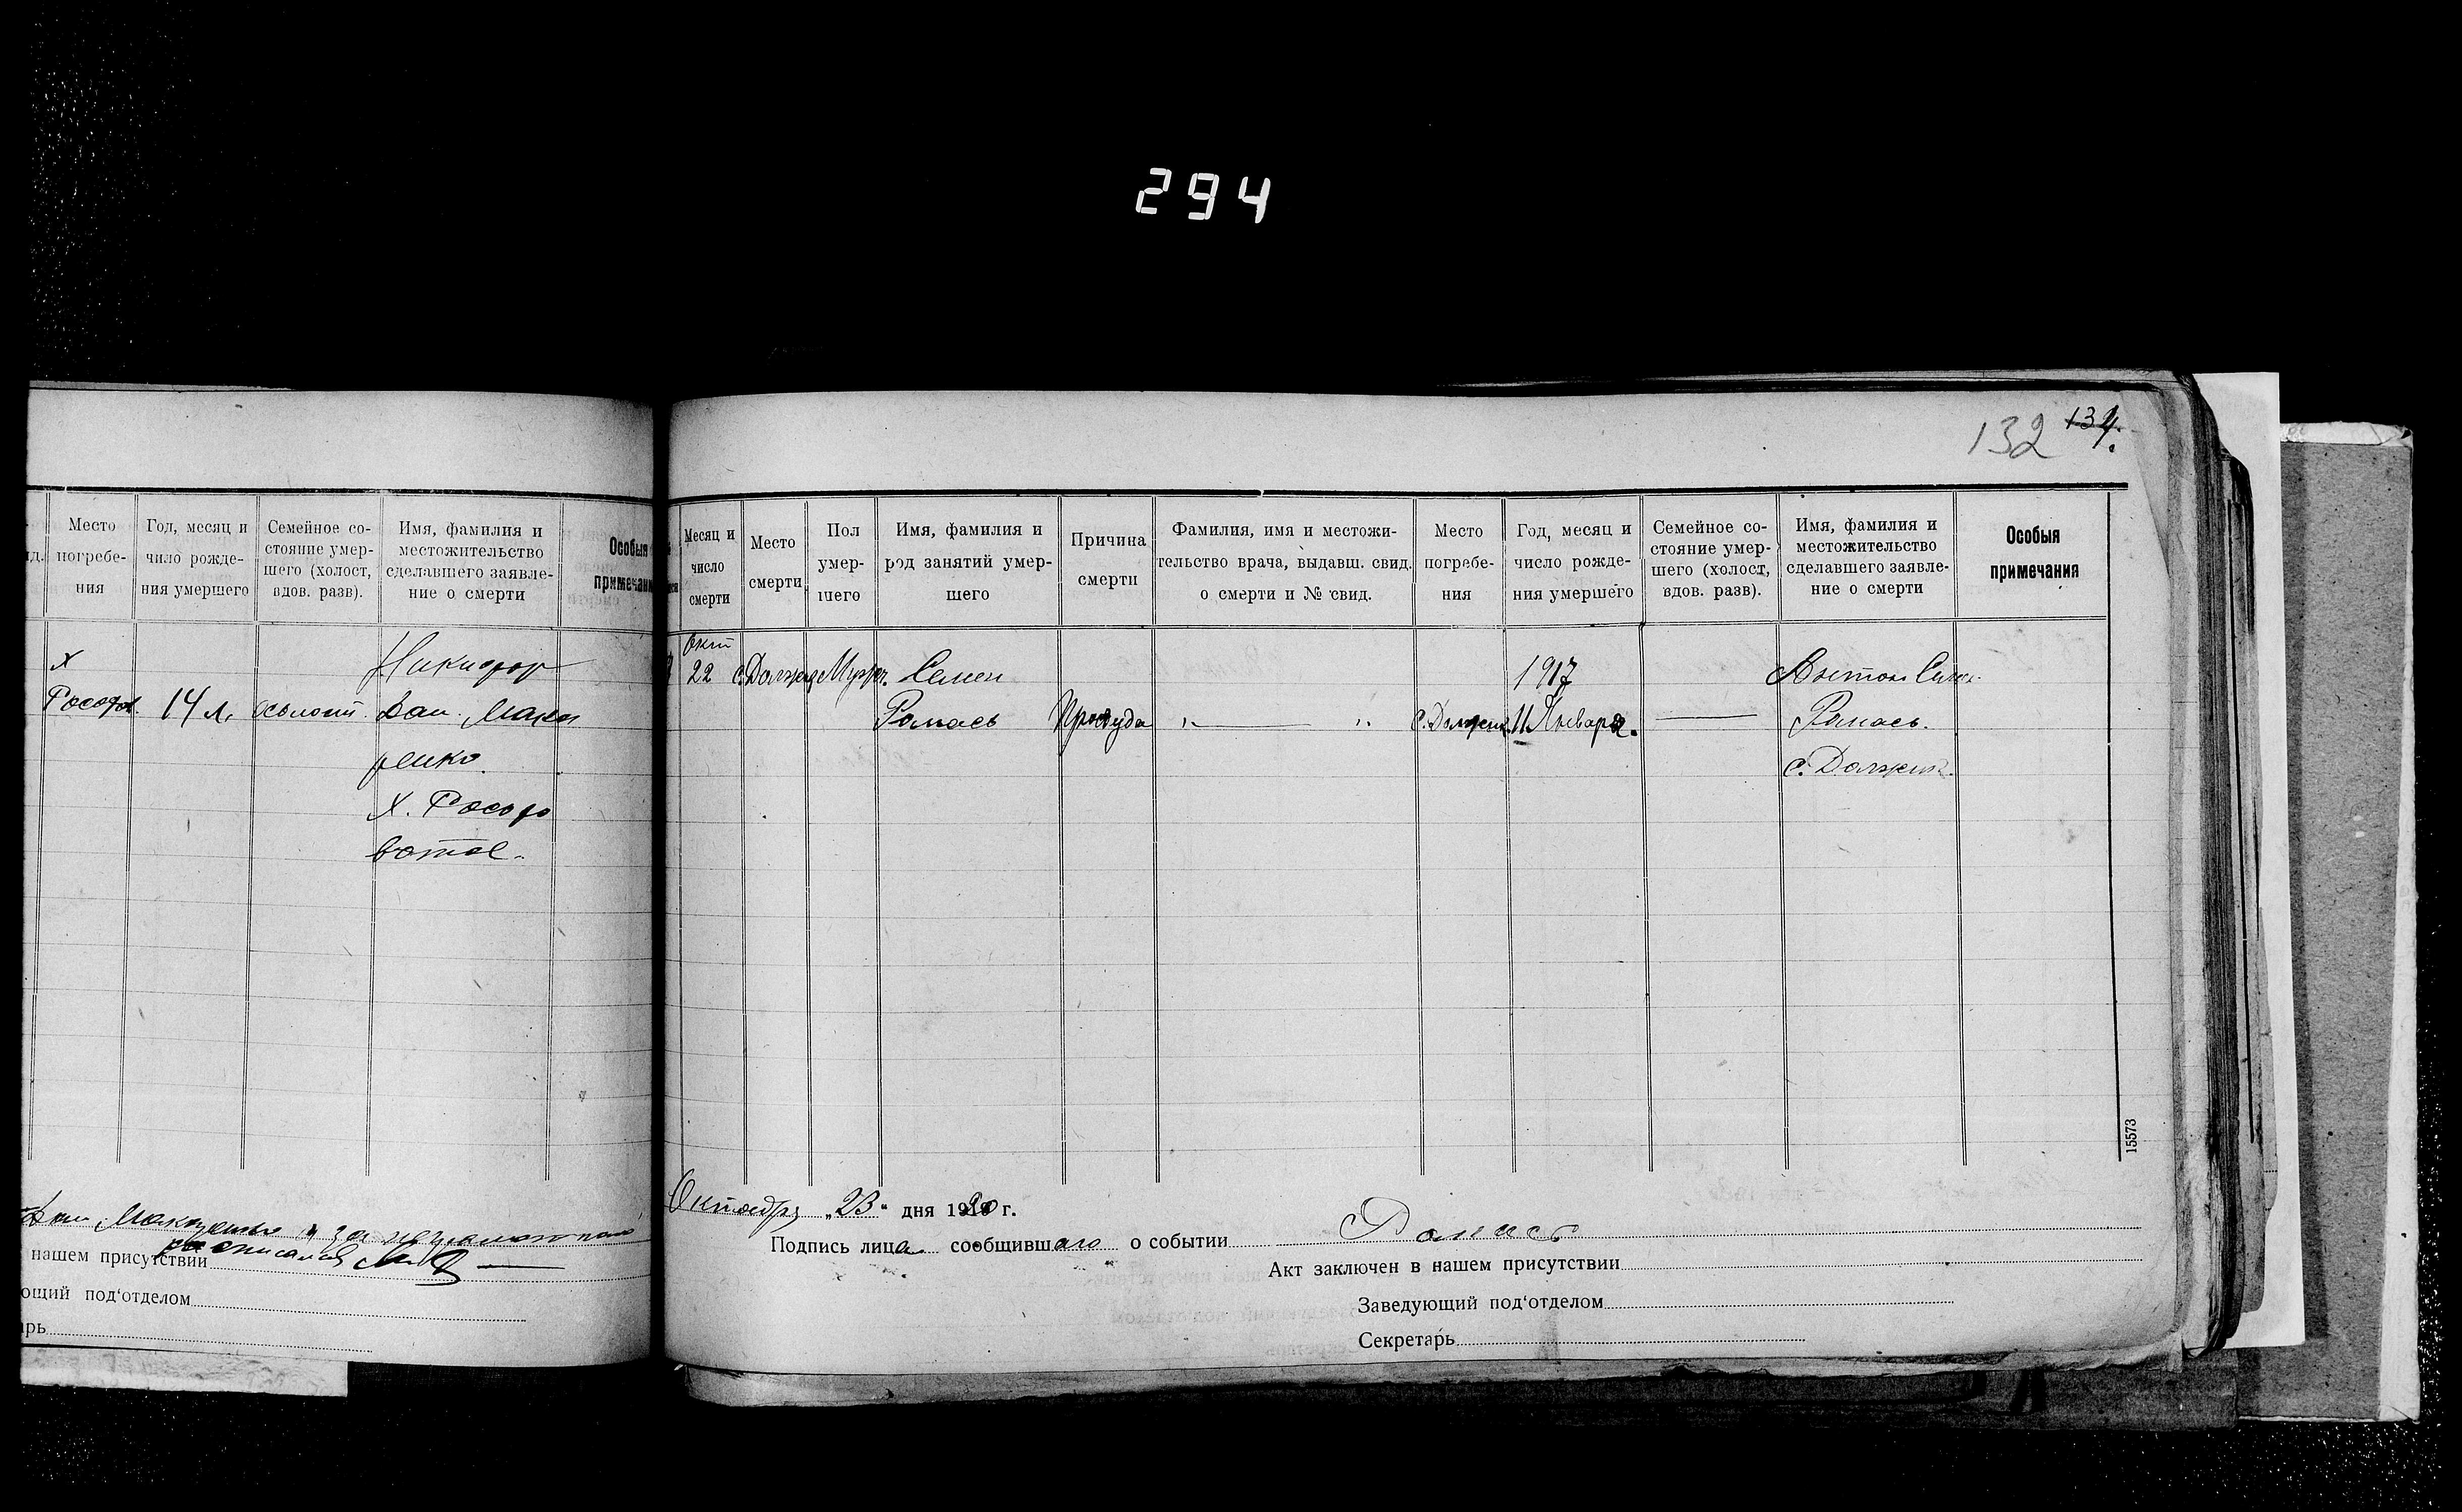 294
132 134.
Место погребения
Год, месяц и число рождения умершего
Семейное состояние умершего (холост, вдов. разв).
Имя, фамилия и местожительство сделавшего заявление о смерти
Особыя
х
14 л.
Никифор
Дан.
х.
нашем присутствии
ющий под'отделом
арь
Месяц и число смерти
Место смерти
Пол умершего
Имя, фамилия и род занятий умершего
Причина смерти
Фамилия, имя и местожительство врача, выдавш. свид. о смерти и № свид.
Место погребения
Год, месяц и число рождения умершего
Семейное состояние умершего (холост, вдов. разв).
Имя, фамилия и местожительство сделавшего заявление о смерти
Особыя примечания
Окт
22 с. Должик Мужч. Семен 1917 Антон
Ромась Простуда " — " с. Должик 11 Января. — Ромась.
с. Должик.
15573
Октября „23" дня 1920 г.
Подпись лица сообщившаго о событии Ромась
Акт заключен в нашем присутствии
Заведующий под'отделом
Секретарь